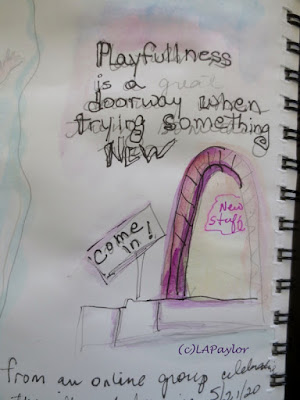 Playfullness
is a great
doorway when
trying something
NEW
New
Stuff
Come
in!
(c)LAPaylor
from an online group celebrating
5/21/20